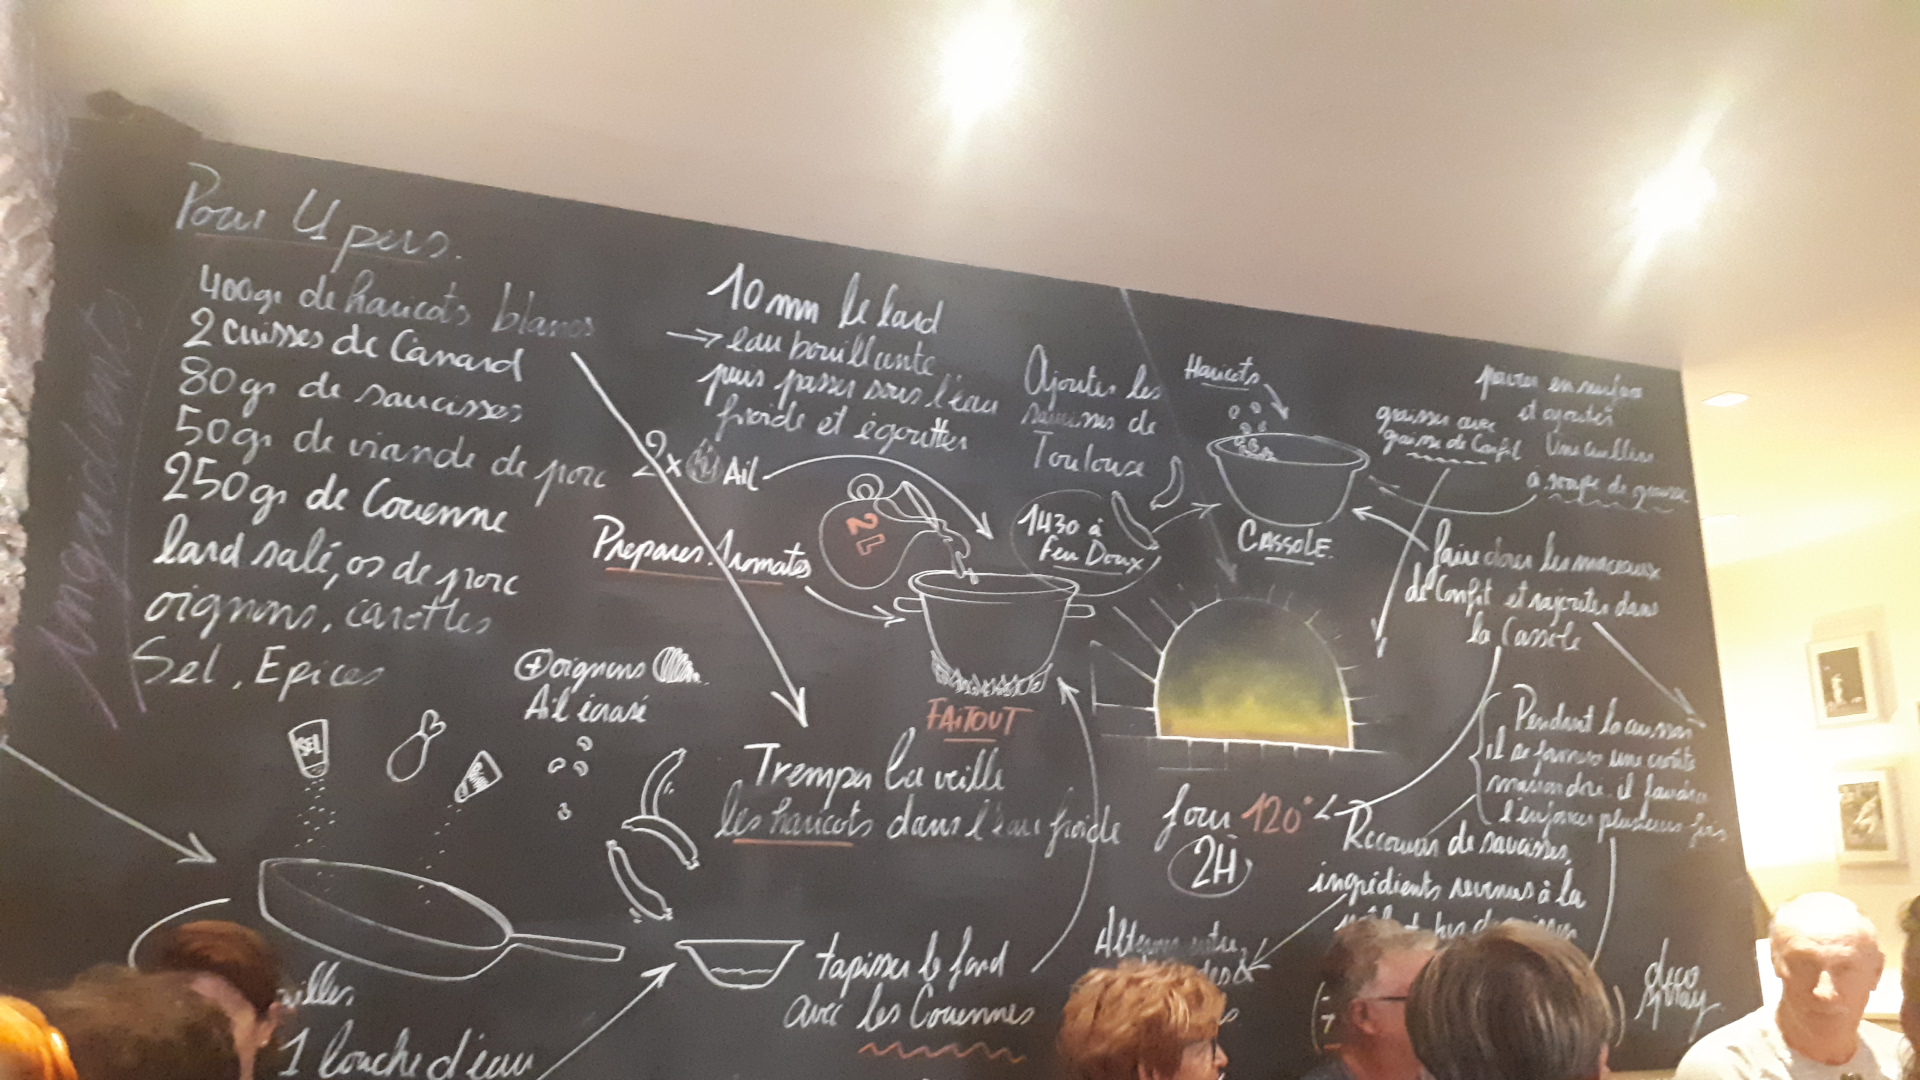 Ingrédients
Pour 4 pers.
400gr de haricots blancs
2 cuisses de Canard
80gr de saucisses
50gr de viande de porc
250gr de Couenne
lard salé, os de porc
oignons, carottes
Sel, Epices
SEL
+ oignons
Ail écrasé
1 louche d'eau
10 mn le lard
→ eau bouillante
puis passer sous l'eau
froide et égoutter
2x Ail
Preparer Aromates
2L
FAITOUT
1H30 à
Feu Doux
Tremper la veille
les haricots dans l'eau froide
tapisser le fond
avec les Couennes
Ajouter les
saucisses de
Toulouse
Haricots
CASSOLE
graisser avec
graisse de Confit
poivrer en surface
et ajouter
Une cuillère
à soupe de graisse
Faire dorer les morceaux
de Confit et rajouter dans
la Cassole
Pendant la cuisson
il se formera une croûte
marron dorée. il faudra
l'enfoncer plusieurs fois
four 120°
2H
Recouvrir de saucisses,
ingrédients revenus à la
Alterner entre
deco
spray